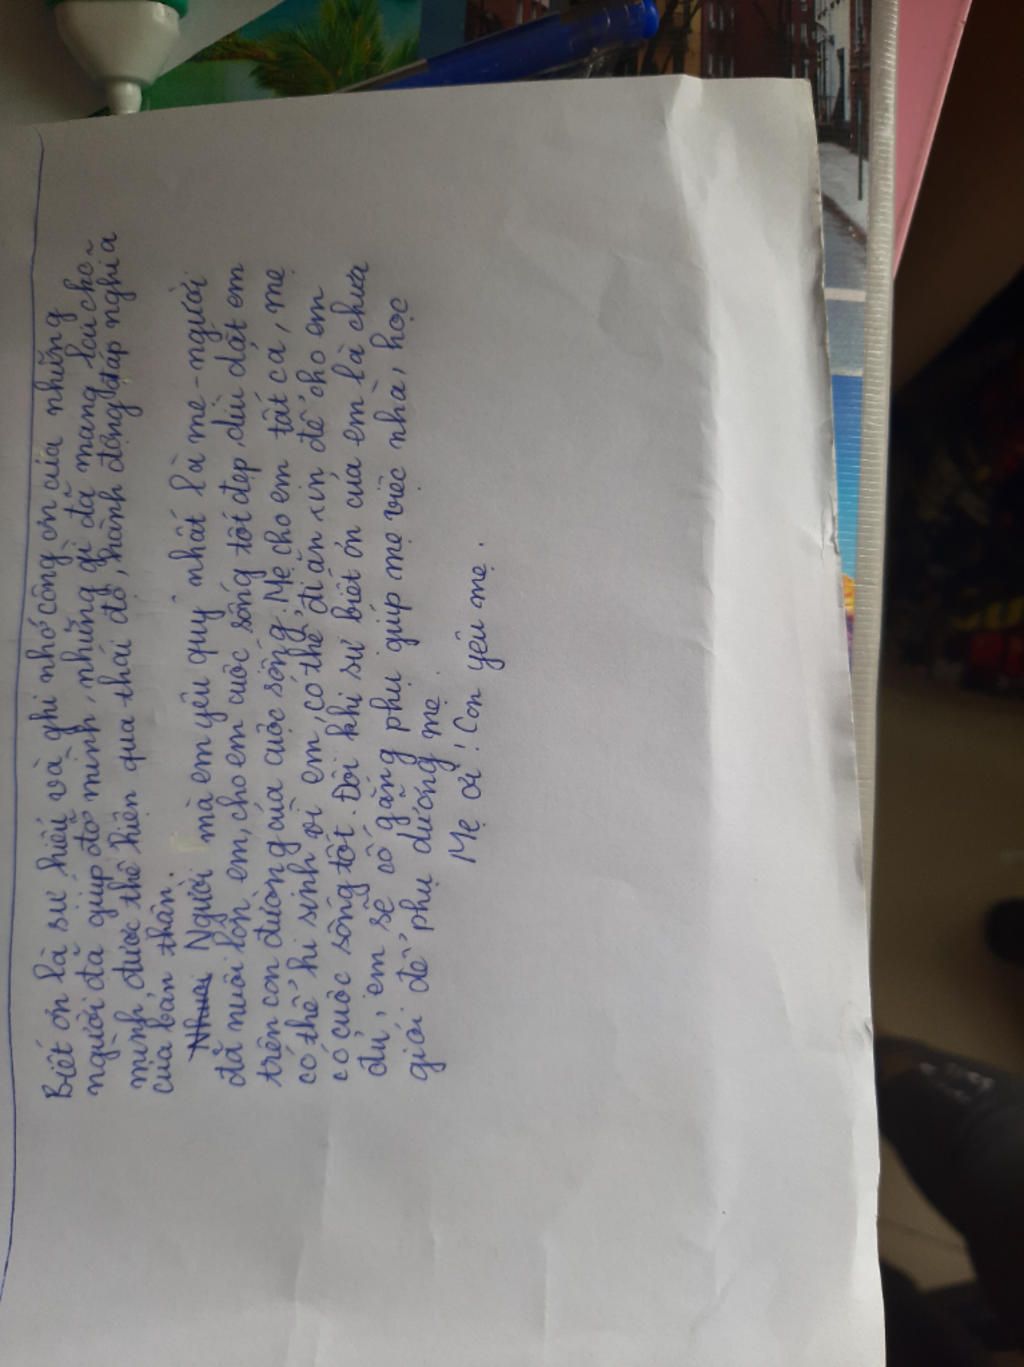 Biết ơn là sự hiểu và ghi nhớ công ơn của những
người đã giúp đỡ mình, những gì đã mang lại cho
mình, được thể hiện qua thái độ, hành động đáp nghĩa
của bản thân.
Người mà em yêu quý nhất là mẹ - người
đã nuôi lớn em, cho em cuộc sống tốt đẹp, dìu dắt em
trên con đường của cuộc sống; Mẹ cho em tất cả, mẹ
có thể hi sinh vì em, có thể đi ăn xin để cho em
có cuộc sống tốt. Đôi khi sự biết ơn của em là chưa
đủ, em sẽ cố gắng phụ giúp mẹ việc nhà, học
giỏi để phụ dưỡng mẹ.
Mẹ ơi! Con yêu mẹ.